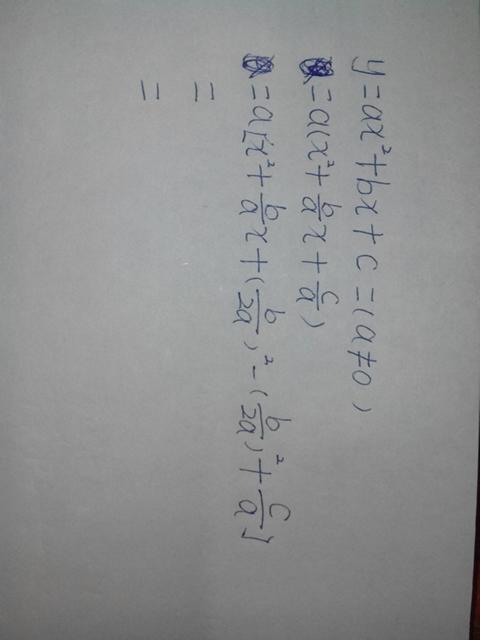 y=ax²+bx+c=(a≠0)
=a(x²+b/a x+c/a)
=a[x²+b/a x+(b/2a)²-(b/2a)²+c/a]
=
=